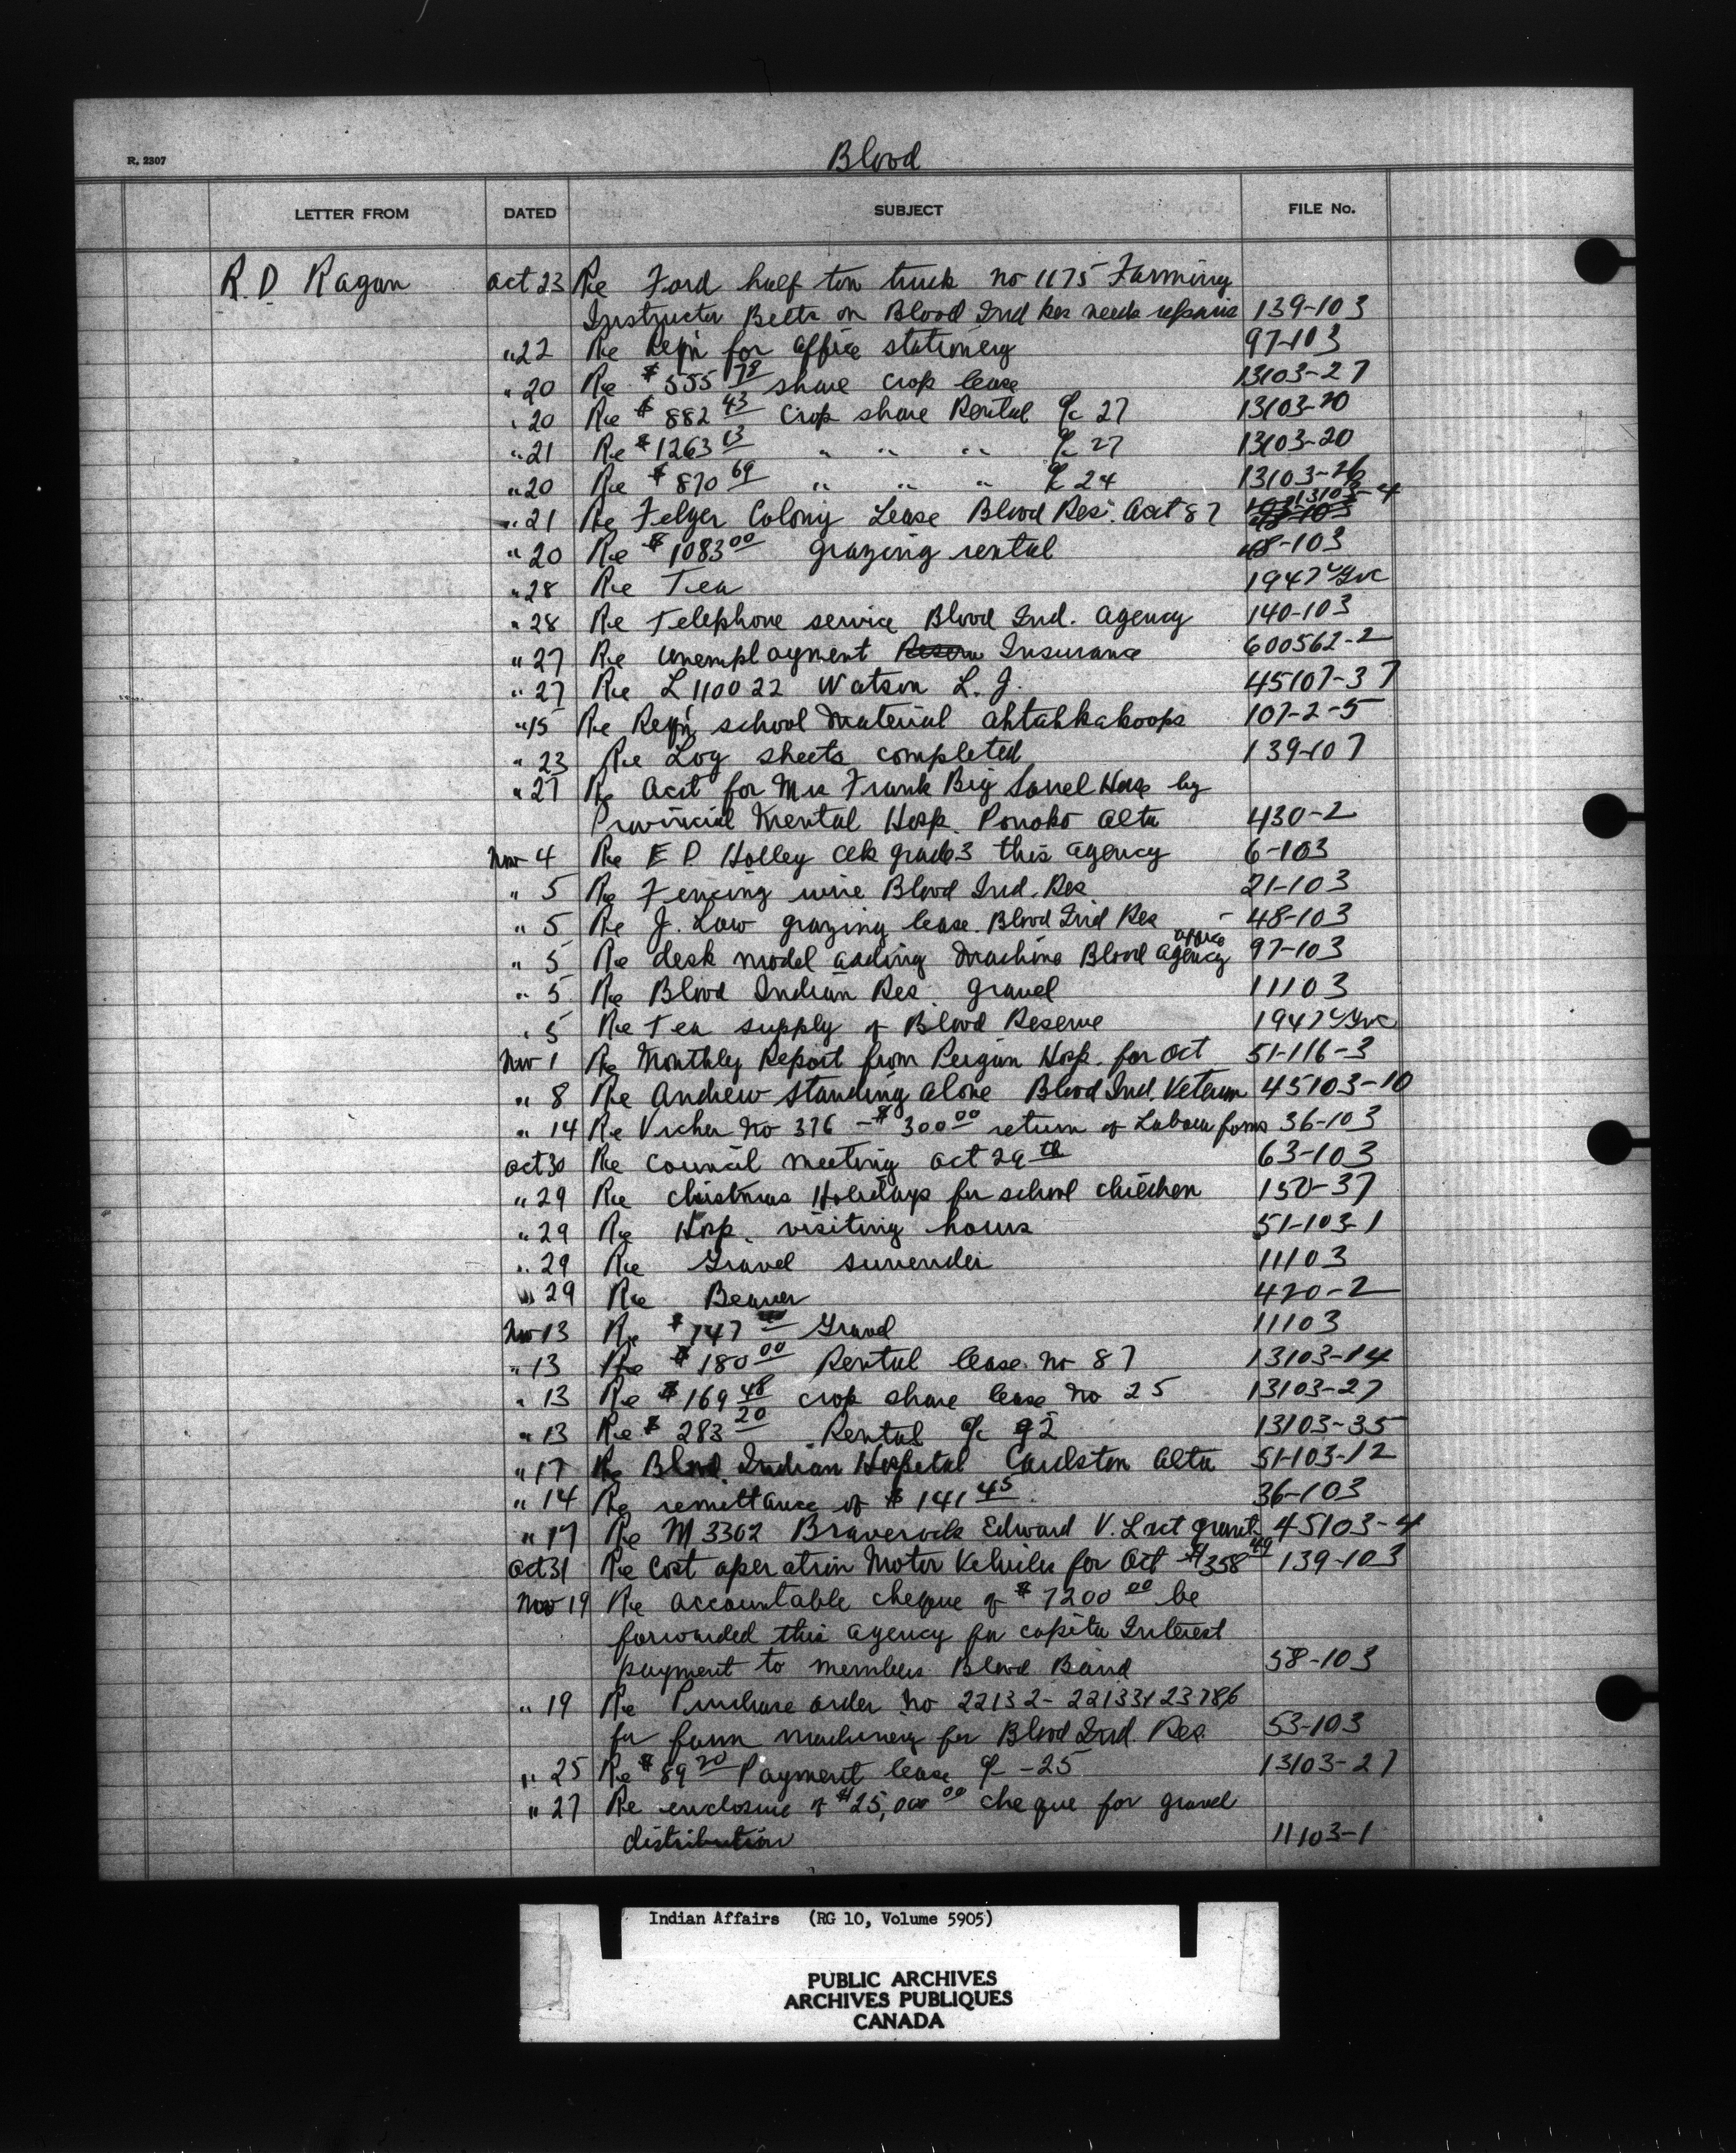 R. 2307
Blood
LETTER FROM DATED SUBJECT FILE No.
R. D. Ragan Oct 23 Re Ford half ton truck no 1175 Farming
Instructor Betts on Blood Ind Res needs repairs 139-103
" 22 Re Repn for Office stationery 97-103
" 20 Re $555 78 share crop lease 13103-27
" 20 Re $882 43 Crop share Rental a/c 27 13103-20
" 21 Re $1263 13 " " " a/c 27 13103-20
" 20 Re $870 69 " " " a/c 24 13103-26
" 21 Re Felger Colony Lease Blood Res. Acct 87 13103-4
" 20 Re $1083 00 grazing rental 48-103
" 28 Re Tea 1947
" 28 Re Telephone service Blood Ind. Agency 140-103
" 27 Re Unemployment Insurance 600562-2
" 27 Re L110022 Watson L. J. 45107-37
" 15 Re Repn school Material Ahtahkakoops 107-2-5
" 23 Re Log sheets completed 139-107
" 27 Re Acct for Mrs Frank Big Sorrel Horse by
Provincial Mental Hosp. Ponoko Alta 430-2
Nov 4 Re E P Holley Clk grade 3 this agency 6-103
" 5 Re Fencing wire Blood Ind. Res 21-103
" 5 Re J. Low grazing lease Blood Ind Res - 48-103
" 5 Re desk model adding Machine Blood Agency office 97-103
" 5 Re Blood Indian Res. gravel 11103
" 5 Re Tea supply of Blood Reserve 1947
Nov 1 Re Monthly Report from Peigan Hosp. for Oct 51-116-3
" 8 Re Andrew Standing Alone Blood Ind. Veteran 45103-10
" 14 Re Vicher No 376 - $300 00 return of Labour forms 36-103
Oct 30 Re Council meeting Oct 29th 63-103
" 29 Re Christmas Holidays for school children 150-37
" 29 Re Hosp. visiting hours 51-103-1
" 29 Re Gravel surrender 11103
" 29 Re Beaver 420-2
Nov 13 Re $747 Gravel 11103
" 13 Re $180 00 Rental lease no 87 13103-14
" 13 Re $169 48 crop share lease No 25 13103-27
" 13 Re $283 20 Rental a/c 92 13103-35
" 17 Re Blood Indian Hospital Cardston Alta 51-103-12
" 14 Re remittance of $141 45. 36-103
" 17 Re M 3302 Braverock Edward V. L act grant. 45103-4
Oct 31 Re Cost operation Motor Vehicles for Oct $358 49 139-103
Nov 19 Re accountable cheque of $7200 00 be
forwarded this Agency per capita Interest
payment to members Blood Band 58-103
" 19 Re Purchase order No 22132 - 22133 & 23786
for farm machinery for Blood Ind. Res. 53-103
" 25 Re $89 20 Payment lease a/c - 25 13103-27
" 27 Re enclosure of $25,000 00 cheque for gravel
distribution 11103-1
Indian Affairs (RG 10, Volume 5905)
PUBLIC ARCHIVES
ARCHIVES PUBLIQUES
CANADA